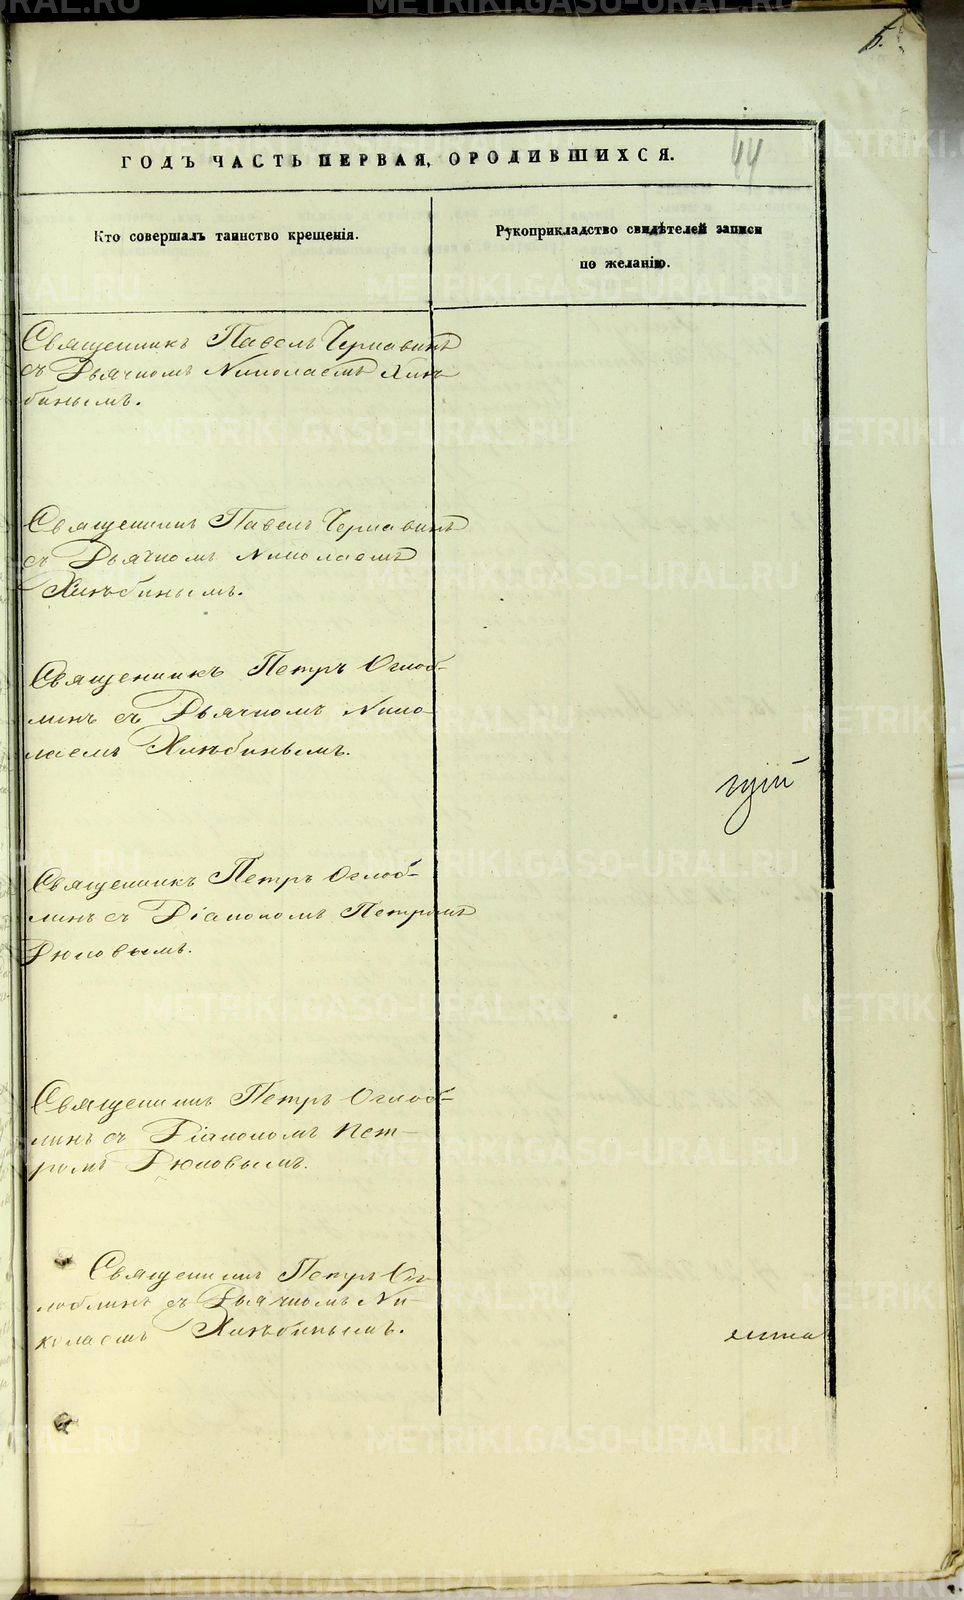 5.
44
ГОДЪ ЧАСТЬ ПЕРВАЯ, О РОДИВШИХСЯ.
Кто совершалъ таинство крещенія.
Рукоприкладство свидѣтелей записи
по желанію.
Священникъ Павелъ Чернавинъ
съ Дьячкомъ Николаемъ Хлѣ-
бинымъ.
Священникъ Павелъ Чернавинъ
съ Дьячкомъ Николаемъ
Хлѣбинымъ.
Священникъ Петръ Оглоб-
линъ съ Дьячкомъ Нико-
лаемъ Хлѣбинымъ.
гій
Священникъ Петръ Оглоб-
линъ съ Діакономъ Петромъ
Дюковымъ.
Священникъ Петръ Оглоб-
линъ съ Діакономъ Пет-
ромъ Дюковымъ.
Священникъ Петръ Ог-
лоблинъ съ Дьячкомъ Ни-
колаемъ Хлѣбинымъ.
METRIKI.GASO-URAL.RU